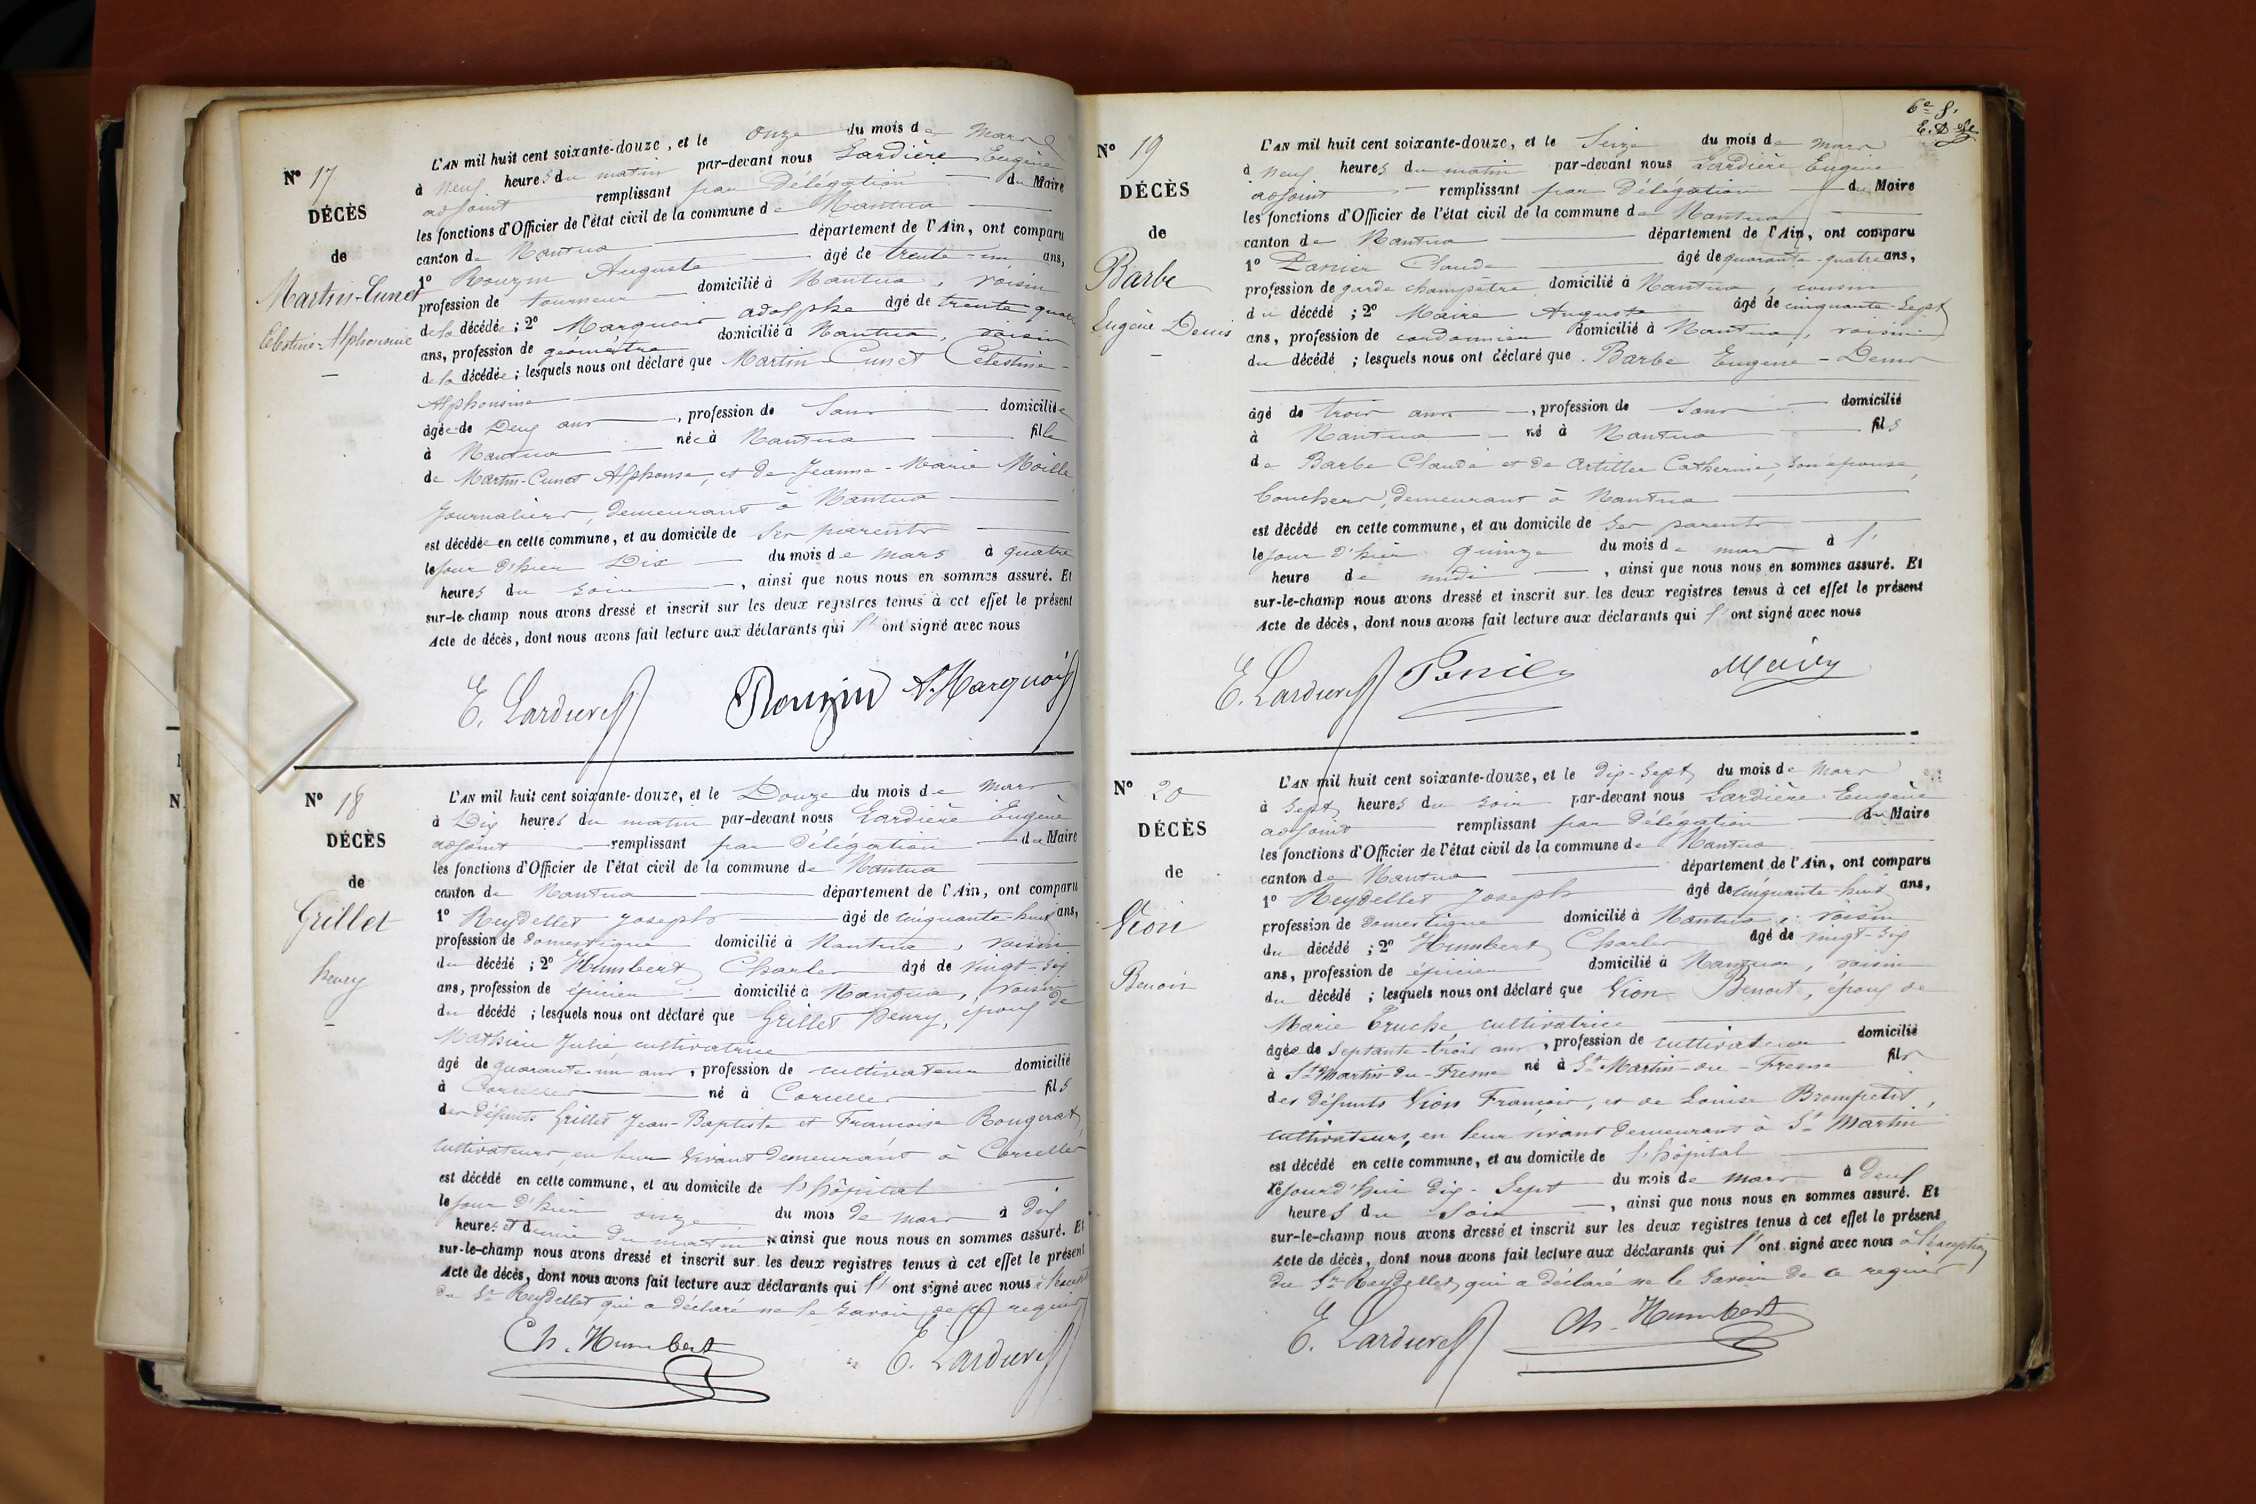 Nº 17
DÉCÈS
de
Martin-Cunet
Célestine-Alphonsine
L'AN mil huit cent soixante-douze, et le onze du mois de Mars
à neuf heures du matin par-devant nous Lardière Eugène
adjoint remplissant par Délégation du Maire
les fonctions d'Officier de l'état civil de la commune de Nantua
canton de Nantua département de l'Ain, ont comparu
1º Rouzin Auguste âgé de trente-un ans,
profession de tourneur domicilié à Nantua, voisin
de la décédée; 2º Marquois adolphe âgé de trente quatre
ans, profession de géomètre domicilié à Nantua, voisin
de la décédée; lesquels nous ont déclaré que Martin-Cunet Célestine-
Alphonsine
âgée de Deux ans, profession de Sans domiciliée
à Nantua née à Nantua fille
de Martin-Cunet Alphonse, et de Jeanne-Marie Moille
journaliers, demeurant à Nantua
est décédée en cette commune, et au domicile de ses parents
le jour d'hier Dix du mois de mars à quatre
heures du soir, ainsi que nous nous en sommes assuré. Et
sur-le-champ nous avons dressé et inscrit sur les deux registres tenus à cet effet le présent
Acte de décès, dont nous avons fait lecture aux déclarants qui l' ont signé avec nous
E. Lardière Rouzin A. Marquois
Nº 18
DÉCÈS
de
Grillet
henry
L'AN mil huit cent soixante-douze, et le Douze du mois de Mars
à Dix heures du matin par-devant nous Lardière Eugène
adjoint remplissant par Délégation du Maire
les fonctions d'Officier de l'état civil de la commune de Nantua
canton de Nantua département de l'Ain, ont comparu
1º Reydellet Joseph âgé de cinquante-huit ans,
profession de domestique domicilié à Nantua, voisin
du décédé; 2º Humbert Charles âgé de vingt-six
ans, profession de épicier domicilié à Nantua, voisin
du décédé; lesquels nous ont déclaré que Grillet henry, époux de
Mathieu Julie cultivatrice
âgé de quarante-un ans, profession de cultivateur domicilié
à Corcelles né à Corcelles fils
des défunts Grillet Jean-Baptiste et Francoise Rougerat
cultivateurs, en leur vivant demeurant à Corcelles
est décédé en cette commune, et au domicile de l'hôpital
le jour d'hier onze du mois de mars à dix
heures et demie du matin, ainsi que nous nous en sommes assuré. Et
sur-le-champ nous avons dressé et inscrit sur les deux registres tenus à cet effet le présent
Acte de décès, dont nous avons fait lecture aux déclarants qui l' ont signé avec nous
du Sr Reydellet qui a déclaré ne le savoir de ce requis
Ch. Humbert E. Lardière
6e f.
Nº 19
DÉCÈS
de
Barbe
Eugène Denis
L'AN mil huit cent soixante-douze, et le Seize du mois de mars
à neuf heures du matin par-devant nous Lardière Eugène
adjoint remplissant par Délégation du Maire
les fonctions d'Officier de l'état civil de la commune de Nantua
canton de Nantua département de l'Ain, ont comparu
1º Claude âgé de quarante-quatre ans,
profession de garde champêtre domicilié à Nantua, cousin
du décédé; 2º Maire Auguste âgé de cinquante-sept
ans, profession de cordonnier domicilié à Nantua, voisin
du décédé; lesquels nous ont déclaré que Barbe Eugène-Denis
âgé de trois ans, profession de Sans domicilié
à Nantua né à Nantua fils
de Barbe Claude et de Artiller Catherine, son épouse,
bouchers, demeurant à Nantua
est décédé en cette commune, et au domicile de ses parents
le jour d'hier quinze du mois de mars à l'
heure de midi, ainsi que nous nous en sommes assuré. Et
sur-le-champ nous avons dressé et inscrit sur les deux registres tenus à cet effet le présent
Acte de décès, dont nous avons fait lecture aux déclarants qui l' ont signé avec nous
E. Lardière
Nº 20
DÉCÈS
de
Vion
Benoit
L'AN mil huit cent soixante-douze, et le dix-sept du mois de Mars
à sept heures du soir par-devant nous Lardière Eugène
adjoint remplissant par Délégation du Maire
les fonctions d'Officier de l'état civil de la commune de Nantua
canton de Nantua département de l'Ain, ont comparu
1º Reydellet Joseph âgé de cinquante-huit ans,
profession de domestique domicilié à Nantua, voisin
du décédé; 2º Humbert Charles âgé de vingt-six
ans, profession de épicier domicilié à Nantua, voisin
du décédé; lesquels nous ont déclaré que Vion Benoit, époux de
Marie Truche cultivatrice
âgé de septante-trois ans, profession de cultivateur domicilié
à St Martin-du-Fresne né à St Martin-du-Fresne fils
des défunts Vion François, et de Louise Brompetit,
cultivateurs, en leur vivant demeurant à St Martin
est décédé en cette commune, et au domicile de l'hôpital
le jourd'hui dix-sept du mois de mars à deux
heures du soir, ainsi que nous nous en sommes assuré. Et
sur-le-champ nous avons dressé et inscrit sur les deux registres tenus à cet effet le présent
Acte de décès, dont nous avons fait lecture aux déclarants qui l' ont signé avec nous
du Sr Reydellet, qui a déclaré ne le savoir de ce requis
E. Lardière Ch. Humbert